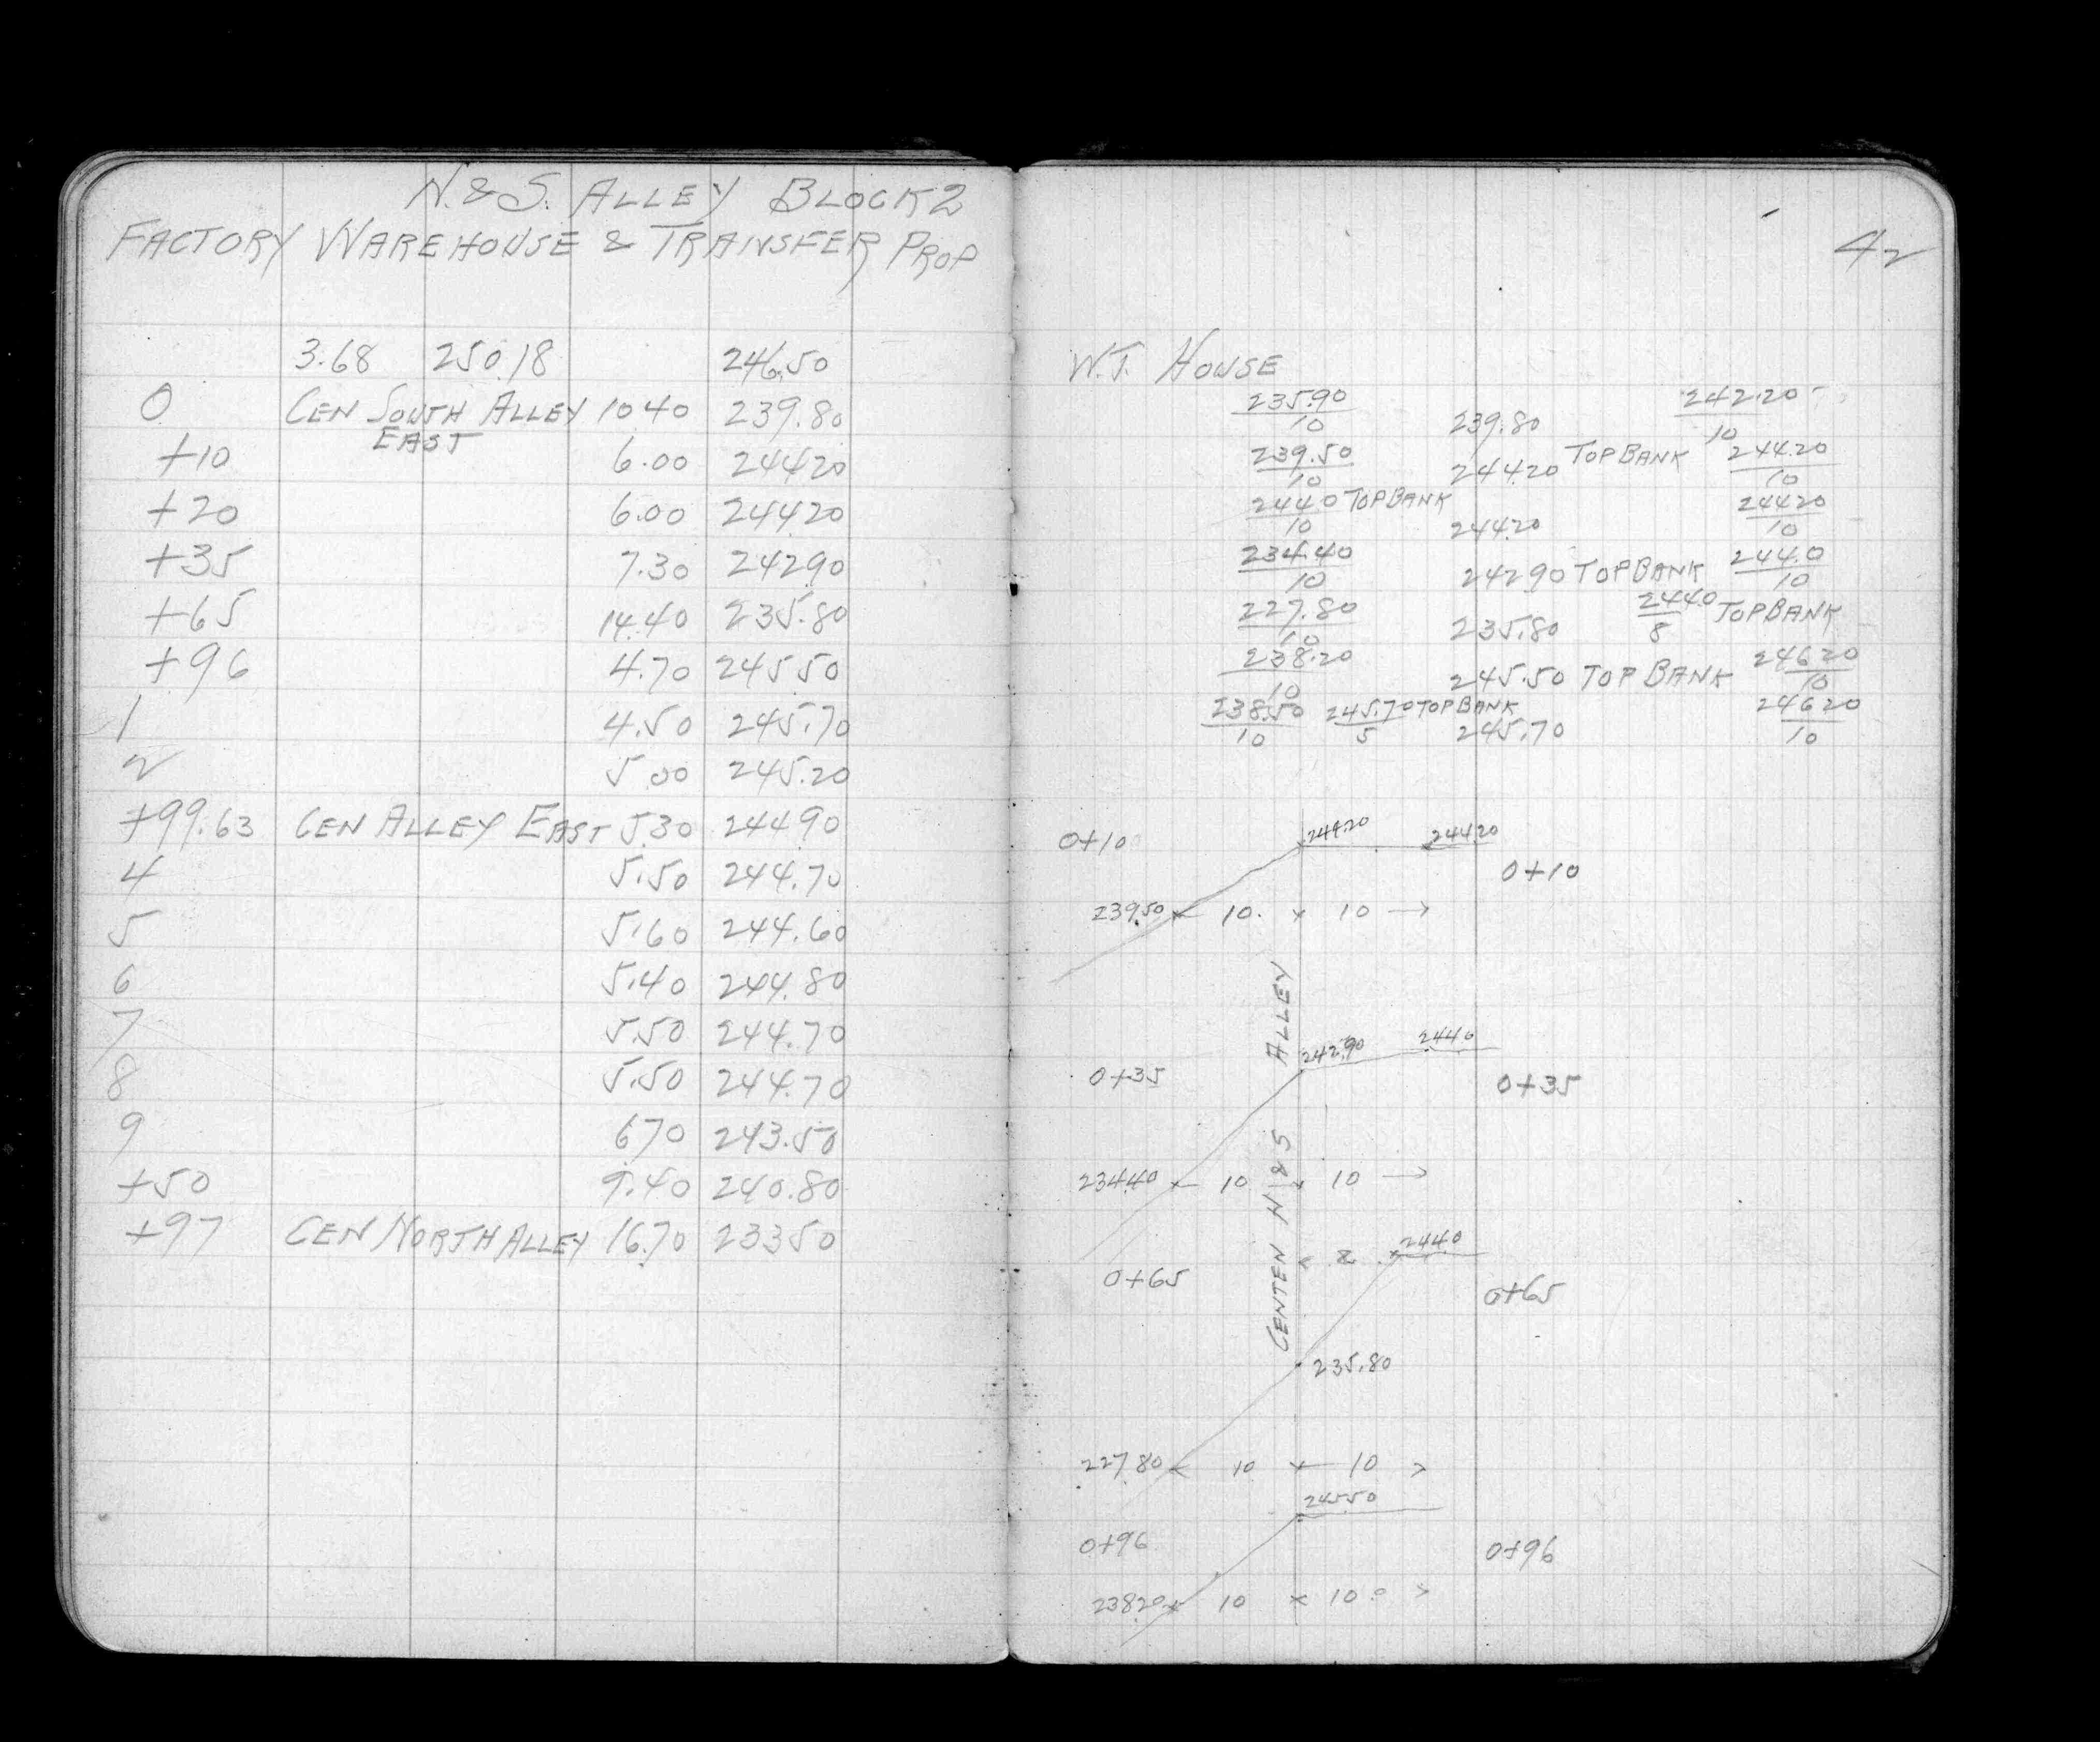 N. & S. ALLEY BLOCK 2
FACTORY WAREHOUSE & TRANSFER PROP
3.68 250.18 246.50
0 CEN SOUTH ALLEY 10.40 239.80
EAST
+10 6.00 244.20
+20 6.00 244.20
+35 7.30 242.90
+65 14.40 235.80
+96 4.70 245.50
1 4.50 245.70
2 5.00 245.20
+99.63 CEN ALLEY EAST 5.30 244.90
4 5.50 244.70
5 5.60 244.60
6 5.40 244.80
7 5.50 244.70
8 5.50 244.70
9 6.70 243.50
+50 9.40 240.80
+97 CEN NORTH ALLEY 16.70 233.50
42
W.T. HOUSE
235.90 242.20
10 239.80 10
239.50 TOP BANK 244.20
10 244.20 10
244.0 TOP BANK 244.20
10 244.20 10
234.40 244.0
10 242.90 TOP BANK 10
227.80 244.0 TOP BANK
10 235.80 8
238.20 246.20
10 245.50 TOP BANK 10
238.50 245.70 TOP BANK 246.20
10 5 245.70 10
0+10 244.20 244.20
0+10
239.50 10. 10
CENTEN N & S ALLEY
242.90 244.0
0+35 0+35
234.40 10 10
8 244.0
0+65 0+65
235.80
227.80 10 10
245.50
0+96 0+96
238.20 10 10